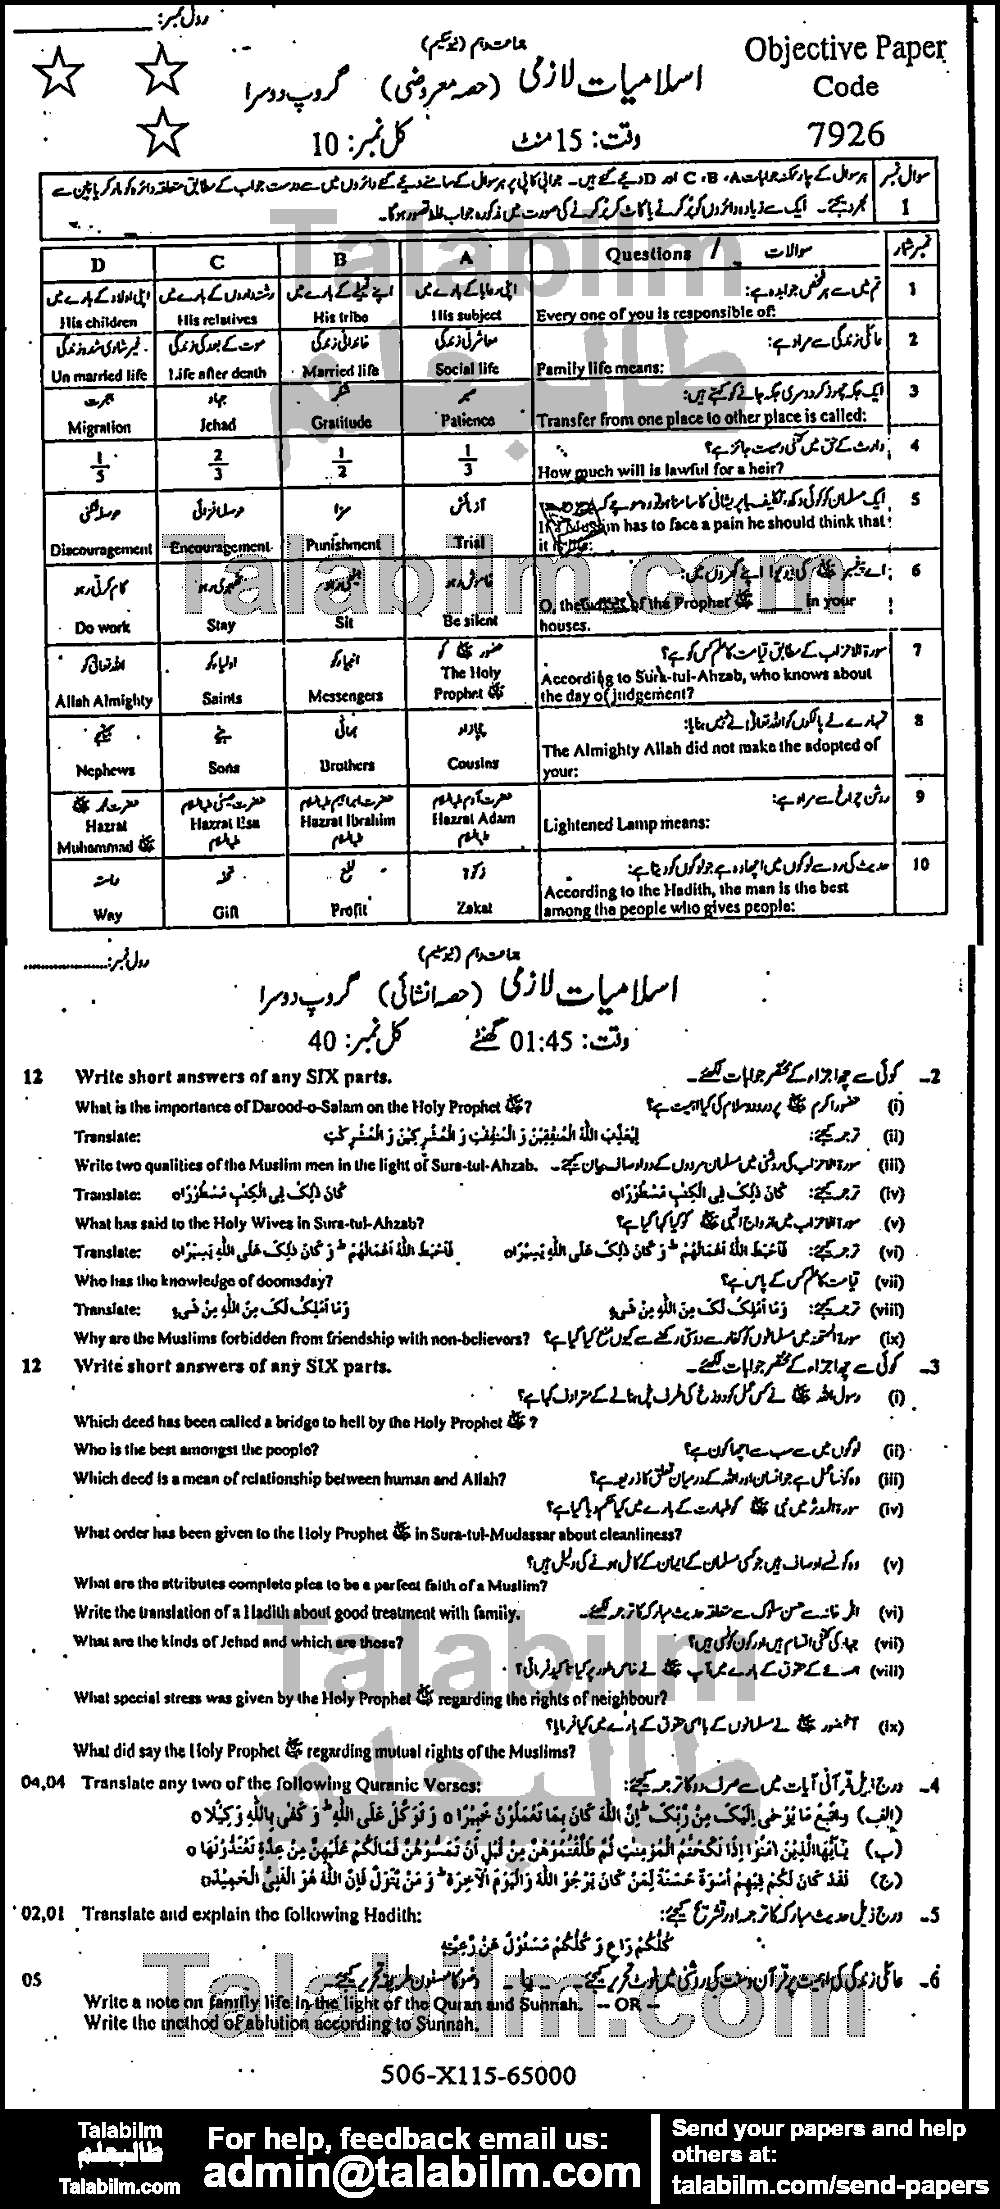 رول نمبر:
جماعت دہم (نیو سکیم)
Objective Paper
Code
7926
اسلامیات لازمی (حصہ معروضی) گروپ دوسرا
وقت: 15 منٹ کل نمبر: 10
سوال نمبر 1
ہر سوال کے چار ممکنہ جوابات A، B، C اور D دیے گئے ہیں۔ جوابی کاپی پر ہر سوال کے سامنے دیے گئے دائروں میں سے درست جواب کے مطابق متعلقہ دائرہ کو مارکر یا پین سے
بھر دیجئے۔ ایک سے زیادہ دائروں کو پُر کرنے یا کاٹ کر پُر کرنے کی صورت میں مذکورہ جواب غلط تصور ہوگا۔
D C B A Questions / سوالات نمبر شمار
اپنی اولاد کے بارے میں رشتہ داروں کے بارے میں اپنے قبیلے کے بارے میں اپنی رعایا کے بارے میں تم میں سے ہر شخص جوابدہ ہے: 1
His children His relatives His tribe His subject Every one of you is responsible of:
غیر شادی شدہ زندگی موت کے بعد کی زندگی خاندانی زندگی معاشرتی زندگی عائلی زندگی سے مراد ہے: 2
Un married life Life after death Married life Social life Family life means:
ہجرت جہاد شکر صبر ایک جگہ چھوڑ کر دوسری جگہ جانے کو کہتے ہیں: 3
Migration Jehad Gratitude Patience Transfer from one place to other place is called:
1/5 2/3 1/2 1/3 وارث کے حق میں کتنی وصیت جائز ہے؟ 4
How much will is lawful for a heir?
حوصلہ شکنی حوصلہ افزائی سزا آزمائش ایک مسلمان کو کوئی دکھ، تکلیف یا پریشانی کا سامنا ہو تو وہ سوچے کہ 5
Discouragement Encouragement Punishment Trial If a Muslim has to face a pain he should think that
it is
کام کرتی رہو ٹھہری رہو بیٹھی رہو خاموش رہو اے پیغمبر ﷺ کی بیویو! اپنے گھروں میں: 6
Do work Stay Sit Be silent O, the of the Prophet ﷺ ____ in your
houses.
اللہ تعالیٰ کو اولیاء کو انبیاء کو حضور ﷺ کو سورۃ الاحزاب کے مطابق قیامت کا علم کس کو ہے؟ 7
Allah Almighty Saints Messengers The Holy Prophet ﷺ According to Sura-tul-Ahzab, who knows about
the day of judgement?
بھتیجے بیٹے بھائی چچا زاد تمہارے لے پالکوں کو اللہ تعالیٰ نے نہیں بنایا: 8
Nephews Sons Brothers Cousins The Almighty Allah did not make the adopted of
your:
حضرت محمد ﷺ حضرت عیسیٰ علیہ السلام حضرت ابراہیم علیہ السلام حضرت آدم علیہ السلام روشن چراغ سے مراد ہے: 9
Hazrat Muhammad ﷺ Hazrat Esa علیہ السلام Hazrat Ibrahim علیہ السلام Hazrat Adam علیہ السلام Lightened Lamp means:
راستہ تحفہ نفع زکوٰۃ حدیث کی رو سے لوگوں میں اچھا وہ ہے جو لوگوں کو دیتا ہے: 10
Way Gift Profit Zakat According to the Hadith, the man is the best
among the people who gives people:
جماعت دہم (نیو سکیم)
رول نمبر:
اسلامیات لازمی (حصہ انشائی) گروپ دوسرا
وقت: 01:45 گھنٹے کل نمبر: 40
12 Write short answers of any SIX parts. 2۔ کوئی سے چھ اجزاء کے مختصر جوابات لکھئے۔
What is the importance of Darood-o-Salam on the Holy Prophet ﷺ? (i) حضور اکرم ﷺ پر درود و سلام کی کیا اہمیت ہے؟
Translate: (ii) ترجمہ کیجئے: لِیُعَذِّبَ اللّٰہُ الْمُنٰفِقِیْنَ وَ الْمُنٰفِقٰتِ وَ الْمُشْرِکِیْنَ وَ الْمُشْرِکٰتِ
Write two qualities of the Muslim men in the light of Sura-tul-Ahzab. (iii) سورۃ الاحزاب کی روشنی میں مسلمان مردوں کے دو اوصاف بیان کیجئے۔
Translate: کَانَ ذٰلِکَ فِی الْکِتٰبِ مَسْطُوْرًا (iv) ترجمہ کیجئے: کَانَ ذٰلِکَ فِی الْکِتٰبِ مَسْطُوْرًا
What has said to the Holy Wives in Sura-tul-Ahzab? (v) سورۃ الاحزاب میں ازواج النبی ﷺ کو کیا کہا گیا ہے؟
Translate: فَاَحْبَطَ اللّٰہُ اَعْمَالَھُمْ ؕ وَ کَانَ ذٰلِکَ عَلَی اللّٰہِ یَسِیْرًا (vi) ترجمہ کیجئے: فَاَحْبَطَ اللّٰہُ اَعْمَالَھُمْ ؕ وَ کَانَ ذٰلِکَ عَلَی اللّٰہِ یَسِیْرًا
Who has the knowledge of doomsday? (vii) قیامت کا علم کس کے پاس ہے؟
Translate: وَمَا اَمْلِکُ لَکَ مِنَ اللّٰہِ مِنْ شَیْءٍ (viii) ترجمہ کیجئے: وَمَا اَمْلِکُ لَکَ مِنَ اللّٰہِ مِنْ شَیْءٍ
Why are the Muslims forbidden from friendship with non-believers? (ix) سورۃ الممتحنہ میں مسلمانوں کو کفار سے دوستی رکھنے سے کیوں منع کیا گیا ہے؟
12 Write short answers of any SIX parts. 3۔ کوئی سے چھ اجزاء کے مختصر جوابات لکھئے۔
(i) رسول اللہ ﷺ نے کس عمل کو دوزخ کی طرف پل بنانے کے مترادف کہا ہے؟
Which deed has been called a bridge to hell by the Holy Prophet ﷺ?
Who is the best amongst the people? (ii) لوگوں میں سے سب سے اچھا کون ہے؟
Which deed is a mean of relationship between human and Allah? (iii) وہ کونسا عمل ہے جو انسان اور اللہ کے درمیان تعلق کا ذریعہ ہے؟
(iv) سورۃ المدثر میں نبی ﷺ کو طہارت کے بارے میں کیا حکم دیا گیا ہے؟
What order has been given to the Holy Prophet ﷺ in Sura-tul-Mudassar about cleanliness?
(v) وہ کونسے اوصاف ہیں جو کسی مسلمان کے ایمان کے کامل ہونے کی دلیل ہیں؟
What are the attributes complete plea to be a perfect faith of a Muslim?
Write the translation of a Hadith about good treatment with family. (vi) اہل خانہ سے حسن سلوک سے متعلقہ حدیث مبارکہ کا ترجمہ لکھئے۔
What are the kinds of Jehad and which are those? (vii) جہاد کی کتنی اقسام ہیں اور کون کونسی ہیں؟
(viii) ہمسائے کے حقوق کے بارے میں آپ ﷺ نے خاص طور پر کیا تاکید فرمائی؟
What special stress was given by the Holy Prophet ﷺ regarding the rights of neighbour?
(ix) آنحضور ﷺ نے مسلمانوں کے باہمی حقوق کے بارے میں کیا فرمایا؟
What did say the Holy Prophet ﷺ regarding mutual rights of the Muslims?
04,04 Translate any two of the following Quranic Verses: 4۔ درج ذیل قرآنی آیات میں سے صرف دو کا ترجمہ کیجئے:
(الف) وَاتَّبِعْ مَا یُوْحٰی اِلَیْکَ مِنْ رَّبِّکَ ؕ اِنَّ اللّٰہَ کَانَ بِمَا تَعْمَلُوْنَ خَبِیْرًا ○ وَ تَوَکَّلْ عَلَی اللّٰہِ ؕ وَ کَفٰی بِاللّٰہِ وَکِیْلًا ○
(ب) یٰۤاَیُّھَا الَّذِیْنَ اٰمَنُوْا اِذَا نَکَحْتُمُ الْمُؤْمِنٰتِ ثُمَّ طَلَّقْتُمُوْھُنَّ مِنْ قَبْلِ اَنْ تَمَسُّوْھُنَّ فَمَا لَکُمْ عَلَیْھِنَّ مِنْ عِدَّۃٍ تَعْتَدُّوْنَھَا ○
(ج) لَقَدْ کَانَ لَکُمْ فِیْھِمْ اُسْوَۃٌ حَسَنَۃٌ لِّمَنْ کَانَ یَرْجُو اللّٰہَ وَالْیَوْمَ الْاٰخِرَ ؕ وَ مَنْ یَّتَوَلَّ فَاِنَّ اللّٰہَ ھُوَ الْغَنِیُّ الْحَمِیْدُ ○
02,01 Translate and explain the following Hadith: 5۔ درج ذیل حدیث مبارکہ کا ترجمہ اور تشریح کیجئے:
کُلُّکُمْ رَاعٍ وَ کُلُّکُمْ مَسْئُوْلٌ عَنْ رَّعِیَّتِہٖ
05 6۔ عائلی زندگی کی اہمیت پر قرآن و سنت کی روشنی میں نوٹ تحریر کیجئے۔ --یا-- وضو کا مسنون طریقہ تحریر کیجئے۔
Write a note on family life in the light of the Quran and Sunnah. -- OR --
Write the method of ablution according to Sunnah.
506-X115-65000
Talabilm
طالبعلم
Talabilm.com
Talabilm
طالبعلم
Talabilm.com
Talabilm
طالبعلم
Talabilm.com
For help, feedback email us:
admin@talabilm.com
Send your papers and help
others at:
talabilm.com/send-papers